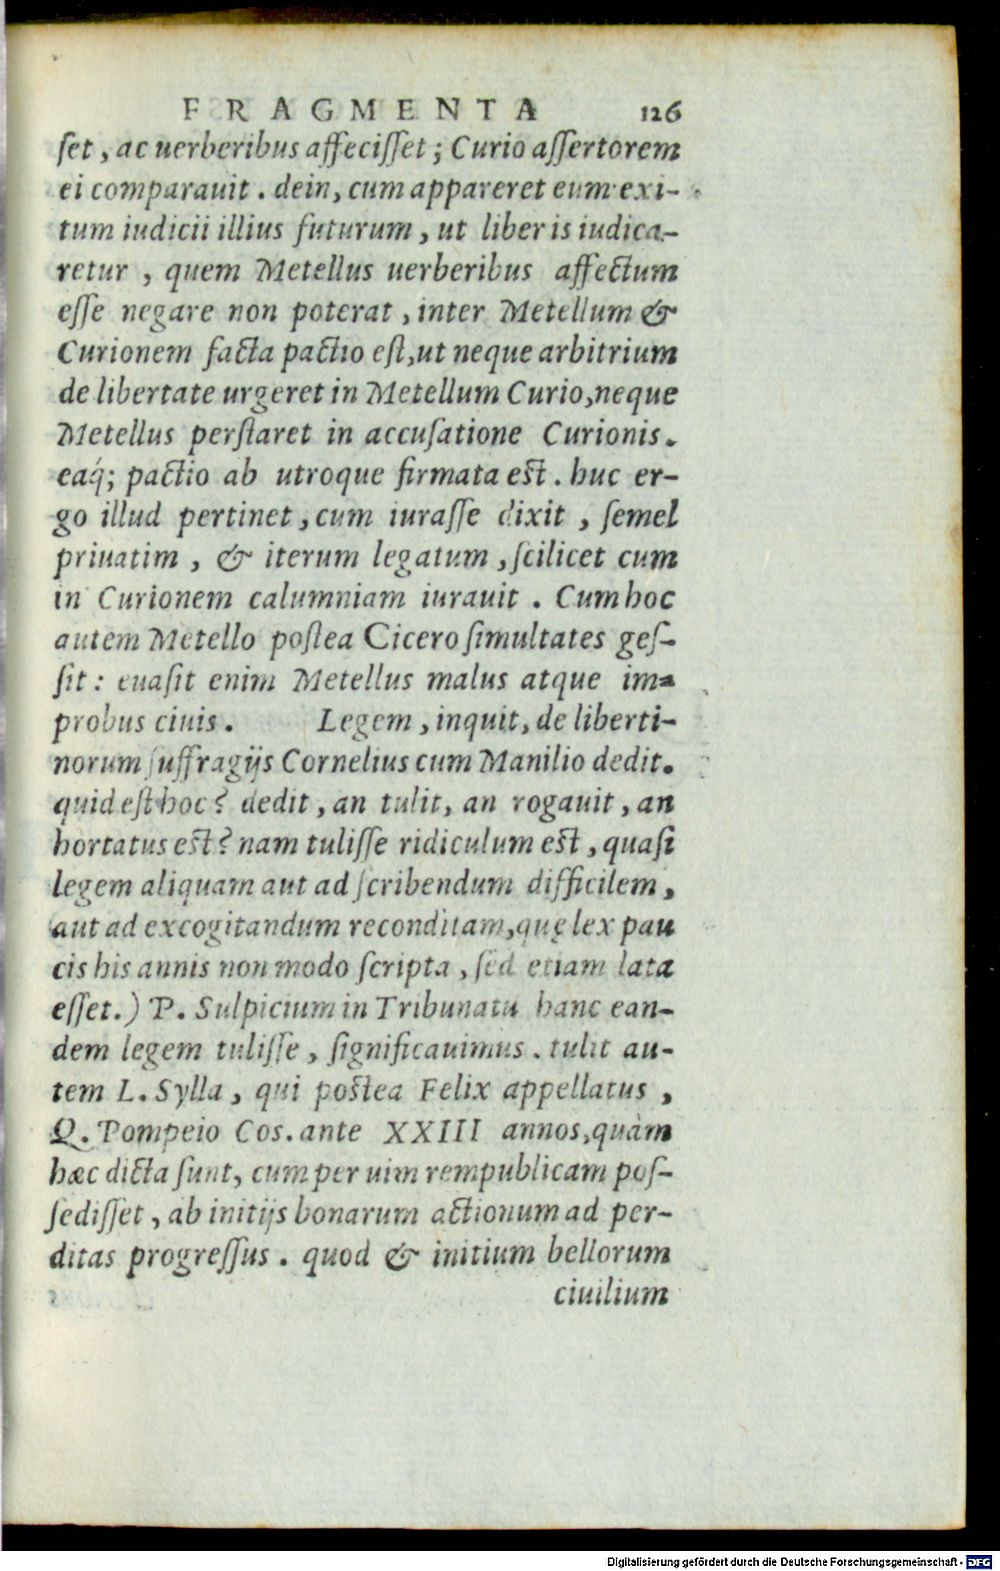 FRAGMENTA 126
ſet, ac uerberibus affeciſſet; Curio aſſertorem
ei comparauit. dein, cum appareret eum exi-
tum iudicii illius futurum, ut liber is iudica-
retur, quem Metellus uerberibus affectum
eſſe negare non poterat, inter Metellum &
Curionem facta pactio eſt, ut neque arbitrium
de libertate urgeret in Metellum Curio, neque
Metellus perſtaret in accuſatione Curionis.
eaq́; pactio ab utroque firmata eſt. huc er-
go illud pertinet, cum iuraſſe dixit, ſemel
priuatim, & iterum legatum, ſcilicet cum
in Curionem calumniam iurauit. Cum hoc
autem Metello poſtea Cicero ſimultates geſ-
ſit: euaſit enim Metellus malus atque im-
probus ciuis. Legem, inquit, de liberti-
norum ſuffragijs Cornelius cum Manilio dedit.
quid eſt hoc? dedit, an tulit, an rogauit, an
hortatus eſt? nam tuliſſe ridiculum eſt, quaſi
legem aliquam aut ad ſcribendum difficilem,
aut ad excogitandum reconditam, quę lex pau
cis his annis non modo ſcripta, ſed etiam lata
eſſet.) P. Sulpicium in Tribunatu hanc ean-
dem legem tuliſſe, ſignificauimus. tulit au-
tem L. Sylla, qui poſtea Felix appellatus,
Q. Pompeio Cos. ante XXIII annos, quàm
hæc dicta ſunt, cum per uim rempublicam poſ-
ſediſſet, ab initijs bonarum actionum ad per-
ditas progreſſus. quod & initium bellorum
ciuilium
Digitalisierung gefördert durch die Deutsche Forschungsgemeinschaft - DFG